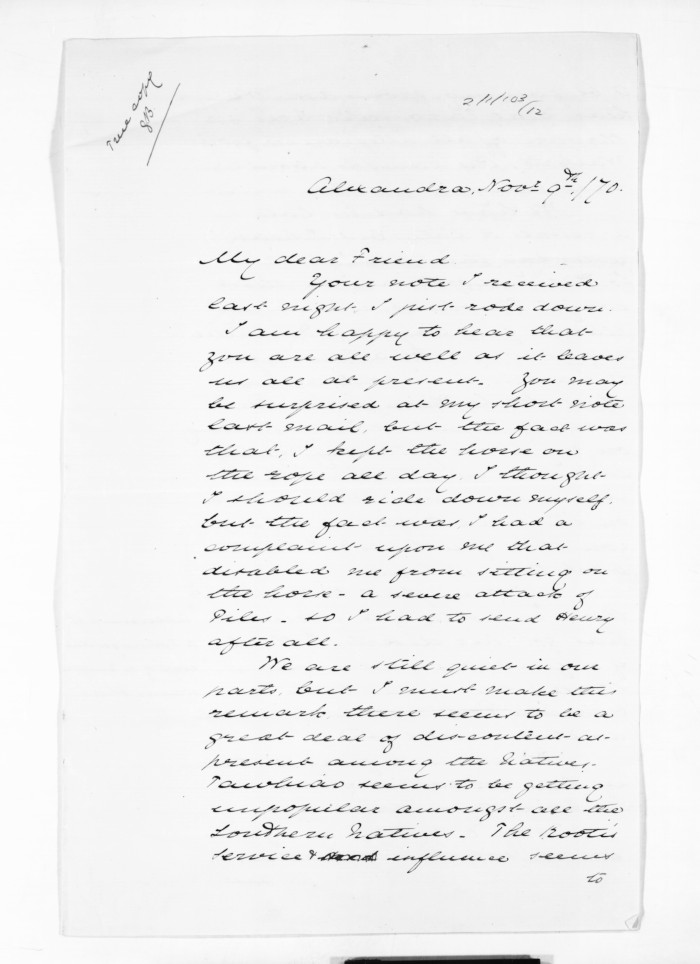 True copy
2/1/103/12
Alexandra, Novr 9th/70.
My dear Friend
Your note I received
last night. I just rode down.
I am happy to hear that
you are all well as it leaves
us all at present. You may
be surprised at my short note
last mail, but the fact was
that, I kept the horse on
the rope all day. I thought
I should ride down myself,
but the fact was I had a
complaint upon me that
disabled me from sitting on
the horse - a severe attack of
Piles - so I had to send Henry
after all.
We are still quiet in our
parts, but I must make this
remark there seems to be a
great deal of discontent at
present among the Natives.
Tawhiao seems to be getting
unpopular amongst all the
Southern Natives. The
service & influence seems
to